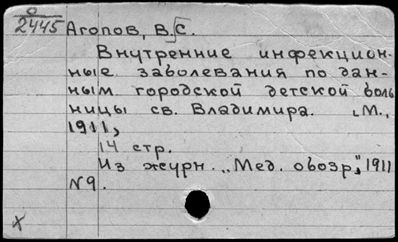 0
2445 Агопов, В.С.
Внутренние инфекцион-
ные заболевания по дан-
ным городской детской боль
ницы св. Владимира. М.,
1911,
14 стр.
Из журн. „Мед. обозр.", 1911
№9.